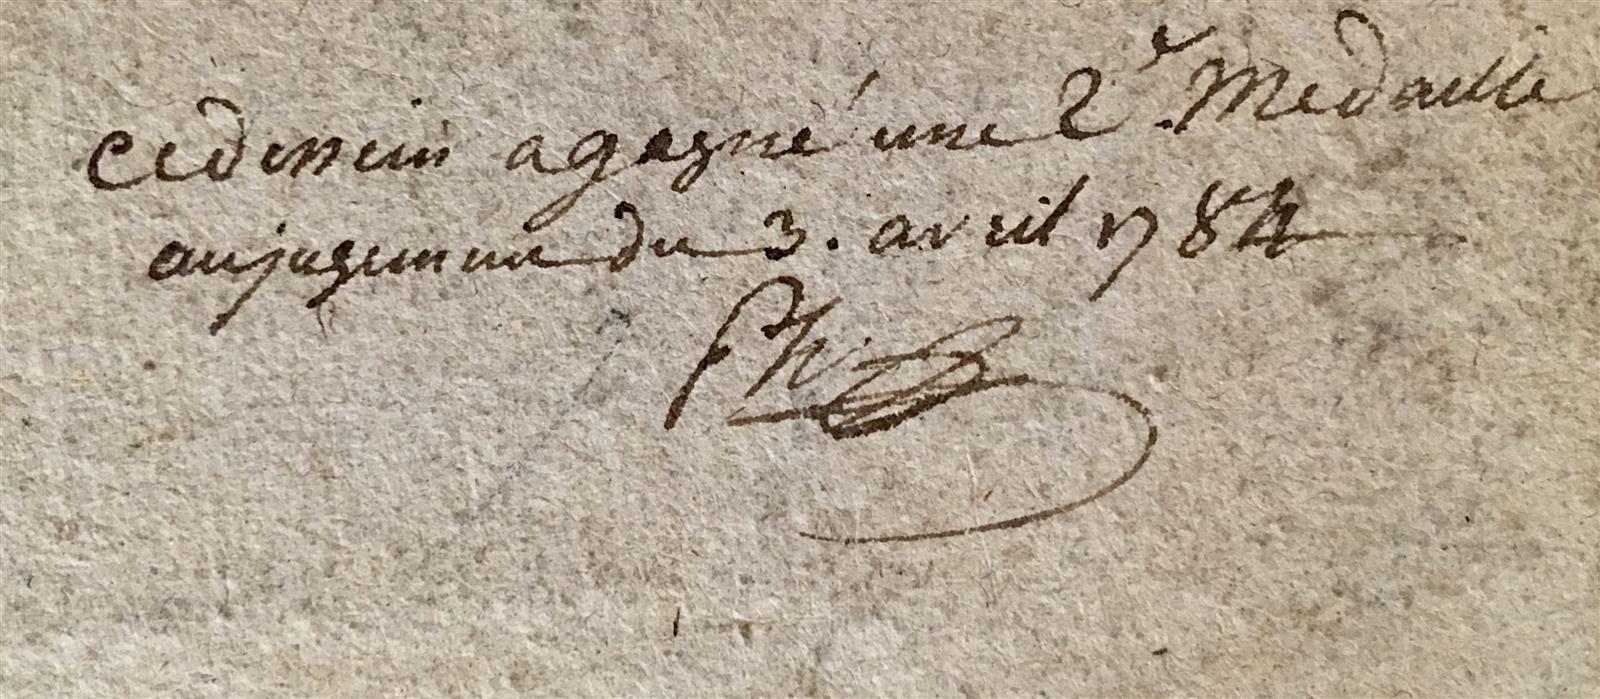 ce dessein a gagné une 2e. Medaille
au jugement du 3. avril 1784
Ph